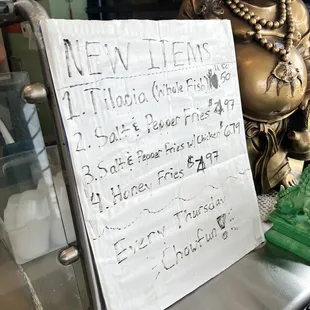 NEW ITEMS
1. Tilapia (Whole Fish) .50
2. Salt & Pepper Fries $4.97
3. Salt & Pepper Fries w/ Chicken 6.79
4. Honey Fries $4.97
Every Thursday
Chowfun!